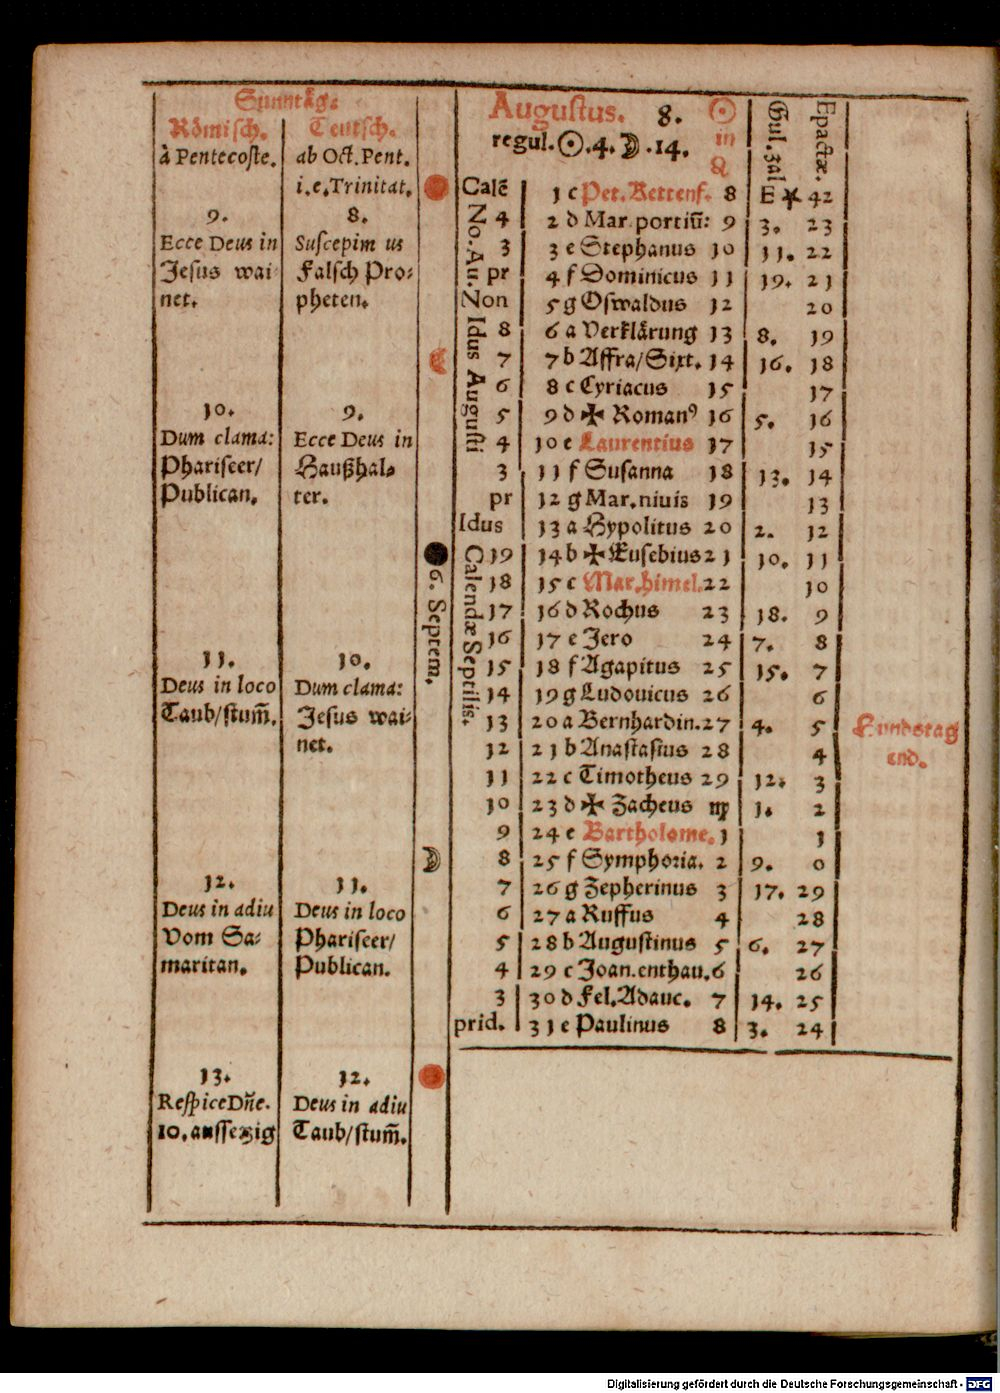 Sunntåg.
Römisch. Teutsch.
à Pentecoste. ab Oct. Pent.
i. e. Trinitat.
9. 8.
Ecce Deus in Suscepim us
Jesus wai- Falsch Pro-
net. pheten.
10. 9.
Dum clama: Ecce Deus in
Phariseer/ Haußhal-
Publican. ter.
11. 10.
Deus in loco Dum clama:
Taub/stum̃. Jesus wai-
net.
12. 11.
Deus in adiu Deus in loco
Vom Sa- Phariseer/
maritan. Publican.
13. 12.
Respice Dñe. Deus in adiu
10. aussezig Taub/stum̃.
6. Septem.
Augustus. 8. ☉
regul. ☉ .4. ☽ .14. in
♌
Gul. zal
Epactæ.
No. Au.
Idus Augusti
Calendæ Septilis.
Calẽ 1 c Pet. Kettenf. 8 E * 42
4 2 d Mar. portiũ: 9 3. 23
3 3 e Stephanus 10 11. 22
pr 4 f Dominicus 11 19. 21
Non 5 g Oswaldus 12 20
8 6 a Verklårung 13 8. 19
7 7 b Affra/Sixt. 14 16. 18
6 8 c Cyriacus 15 17
5 9 d ✠ Romanꝰ 16 5. 16
4 10 e Laurentius 17 15
3 11 f Susanna 18 13. 14
pr 12 g Mar. niuis 19 13
Idus 13 a Hypolitus 20 2. 12
19 14 b ✠ Eusebius 21 10. 11
18 15 c Mar. himel. 22 10
17 16 d Rochus 23 18. 9
16 17 e Jero 24 7. 8
15 18 f Agapitus 25 15. 7
14 19 g Ludouicus 26 6
13 20 a Bernhardin. 27 4. 5
12 21 b Anastasius 28 4
11 22 c Timotheus 29 12. 3
10 23 d ✠ Zacheus ♍ 1. 2
9 24 e Bartholome. 1 1
8 25 f Symphoria. 2 9. 0
7 26 g Zepherinus 3 17. 29
6 27 a Ruffus 4 28
5 28 b Augustinus 5 6. 27
4 29 c Joan. enthau. 6 26
3 30 d Fel. Adauc. 7 14. 25
prid. 31 e Paulinus 8 3. 24
Hundstag
end.
Digitalisierung gefördert durch die Deutsche Forschungsgemeinschaft - DFG